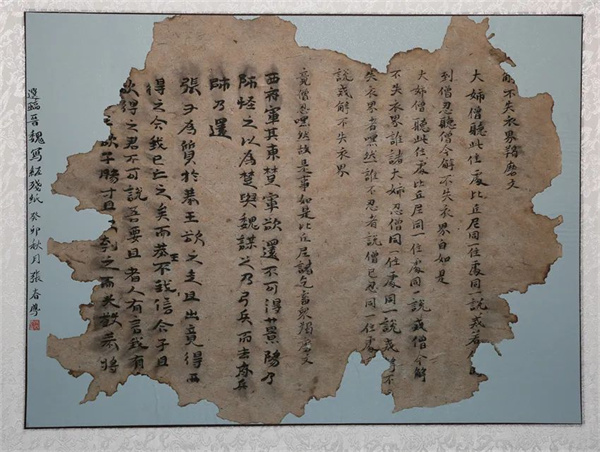 解不失衣界羯磨文
大姊僧聽此住處比丘尼同一住處同說戒若
到僧忍聽僧今解不失衣界白如是
大姊僧聽此住處比丘尼同一住處同一說戒僧今解
不失衣界誰諸大姊忍僧同一住處同一說戒
失衣界者嘿然誰不忍者說僧已忍同一住處
說戒解不失衣界
竟僧忍嘿然故是事如是比丘尼諸乞畜眾羯磨文
西 軍其東楚軍欲還不可得也景陽乃
師怪之以為楚與魏謀之乃引兵而去燕兵
師乃還
張丑為質於燕王欲之走且出竟得
得之今我已亡之矣而燕王不我信今子且
欲得之君不可說吾要且 者人有言我有
之欲子腸寸且 到之 而 燕將
選臨晉魏寫經殘紙 癸卯秋月 張春學